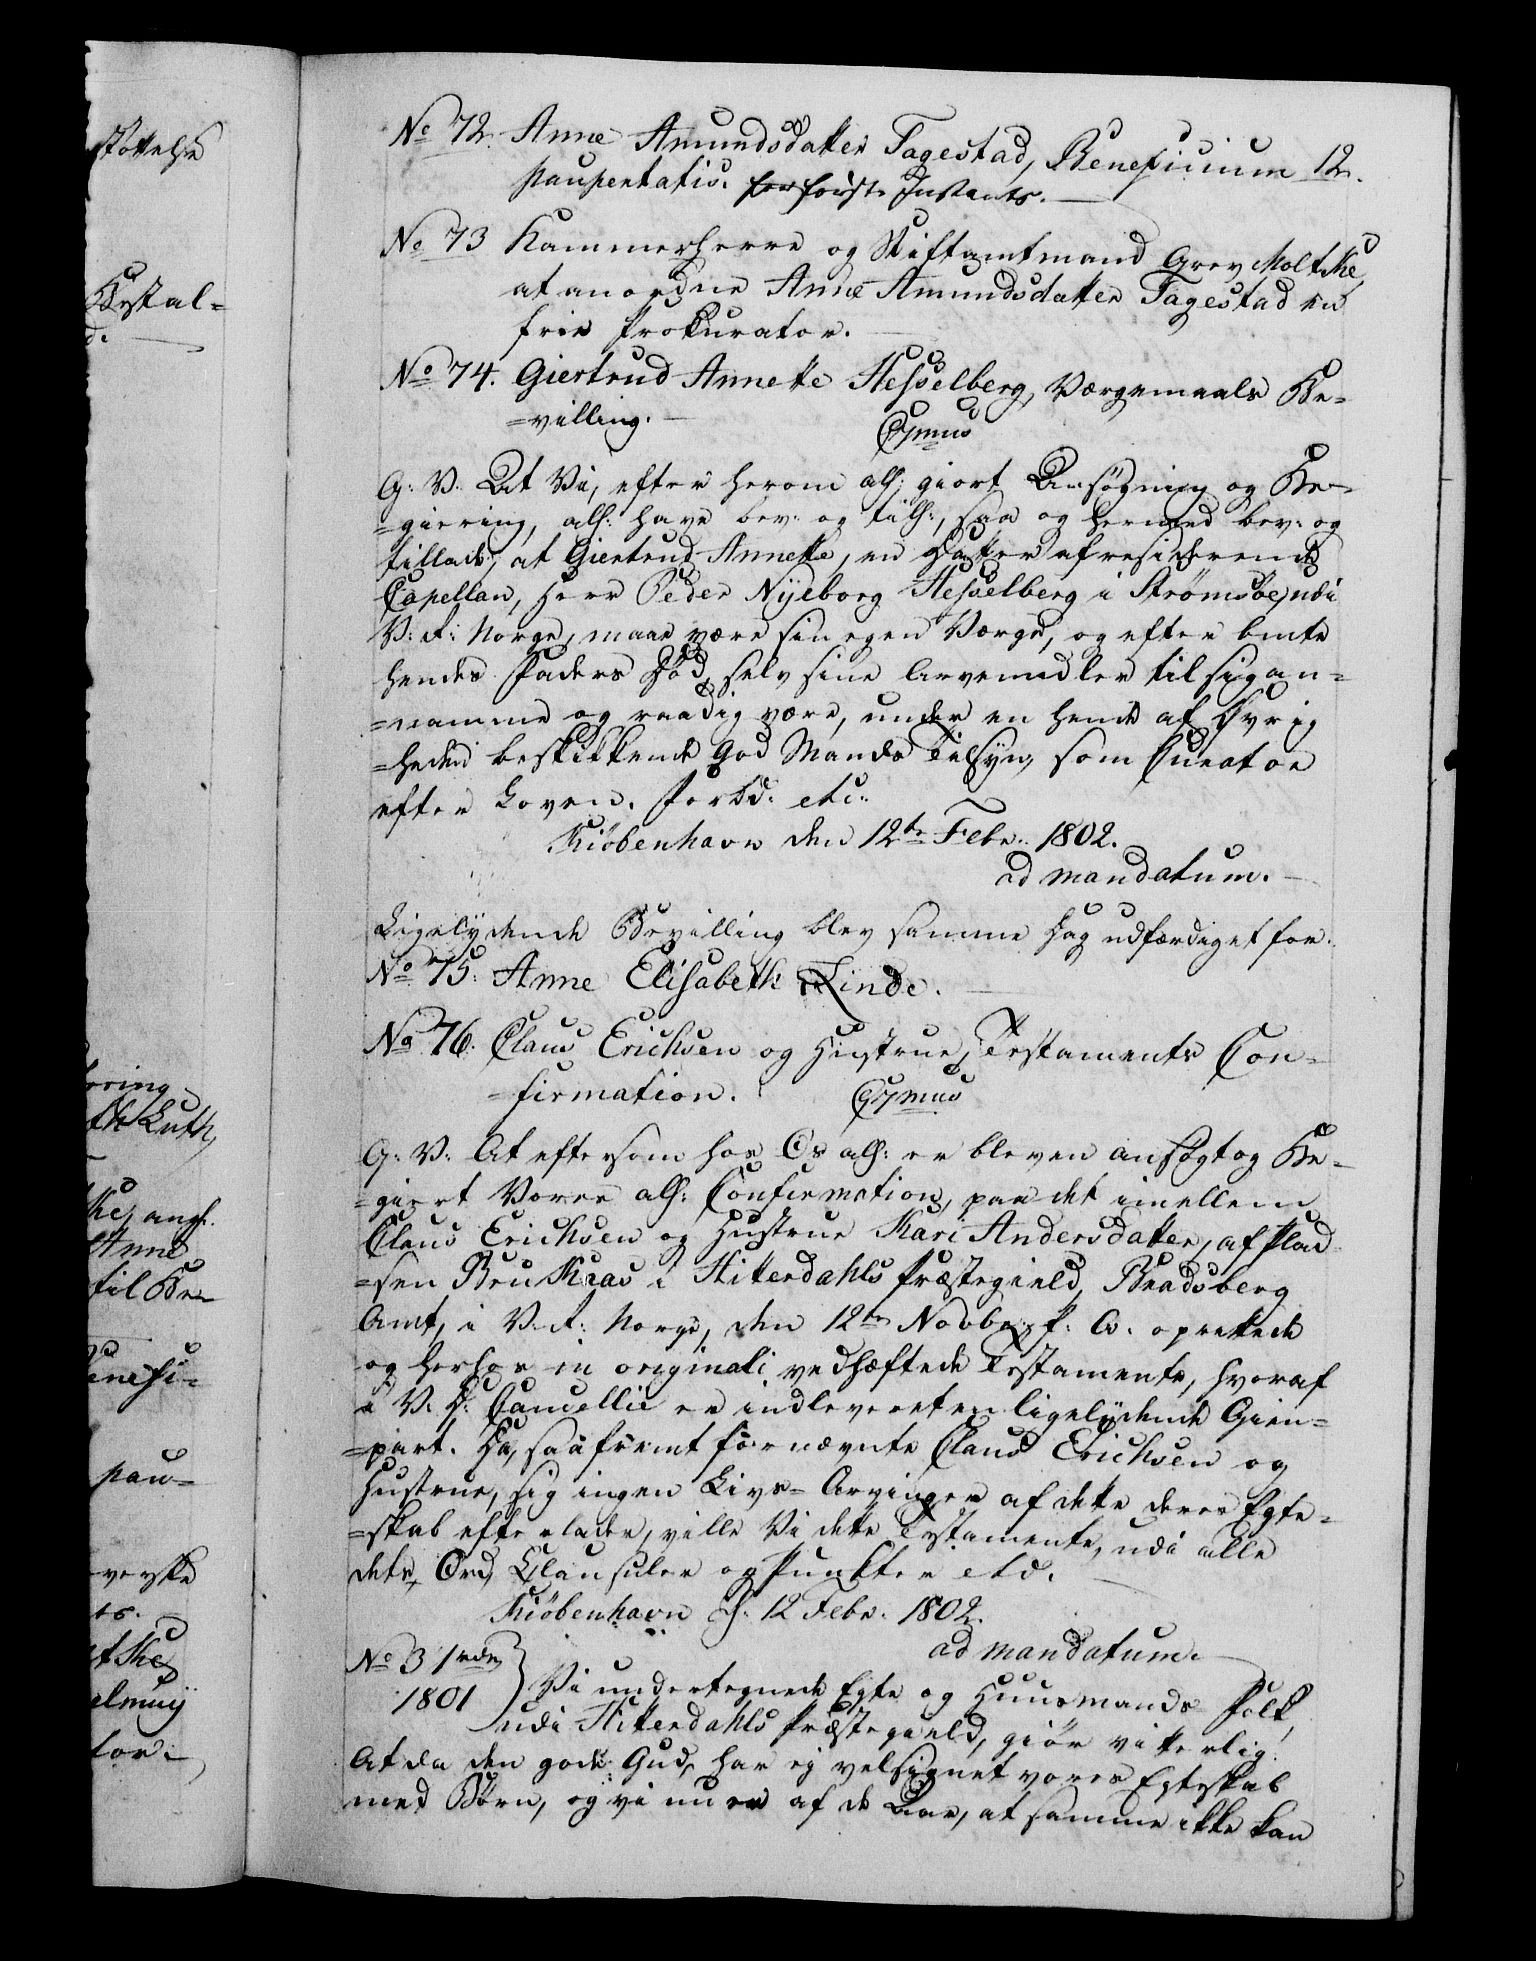 støttelse
Bestal=
d.
N<u>o</u> 72. Anne Amundsdatter Fagestad, Beneficium 12.
paupertatis. for første Instants.
No 73 Kammerherre og Stiftamtmand Grev Moltke,
at anordne Anne Amundsdatter Fagestad en
frie Prokurator.
No 74. Giertrud Annette Hesselberg, Værgemaals Be=
=villing.
C7mus
G: V. At Vi, efter herom all: giort Ansøgning og Be=
=giering, all: have bev: og till:, saa og hermed bev: og
tillade, at Giertrud Annette, en Datter af residerende
Capellan, Herr Peder Nyeborg Hesselberg i Strømsøe, udi
V: R: Norge, maae være sin egen Værge, og efter bmte
hendes Faders Død, selv sine Arvemidler til sig an=
=namme og raadig være, under en hende af Øvrig
=heden beskikkende god Mands Tilsyn, som Curator
efter Loven. Forbd: etc:
Kiøbenhavn den 12te Febr: 1802.
ad mandatum.
Ligelydende Bevilling blev samme Dag udfærdiget for.
No 75. Anne Elisabeth Linde.
No 76. Claus Erichsen og Hustrue, Testaments Con=
=firmation.
C7mus
G: V: At eftersom hos Os all: er bleven ansøgt og Be=
=giert Vores all: Confirmation, paa det imellem
Claus Erichsen og Hustrue Kari Andersdatter, af Plad
=sen Bru Kaas i Hitterdahls Præstegield, Bradsberg
Amt, i V. R: Norge, den 12te Novbr f: A: oprettede
og herhos in originali vedhæftede Testamente, hvoraf
i V. D: Cancellie er indleveret en ligelydende Gien=
=part. Da, saafremt fornævnte Claus Erichsen og
Hustrue, sig ingen Livs=Arvinger af dette deres Egte=
=skab efterlader, ville Vi dette Testamente, udi alle
dets Ord, Clausuler og Punkter etc.
Kiöbenhavn d: 12 Febr: 1802.
ad mandatum.
No 3 1rde
1801
Vi undertegnede Egte og Huusmands Folk
udi Hitterdahls Præstegield, giör vitterlig:
At da den gode Gud, har ej velsignet vores Egteskab
med Børn, og vi nu er af de Aar, at samme ikke kan